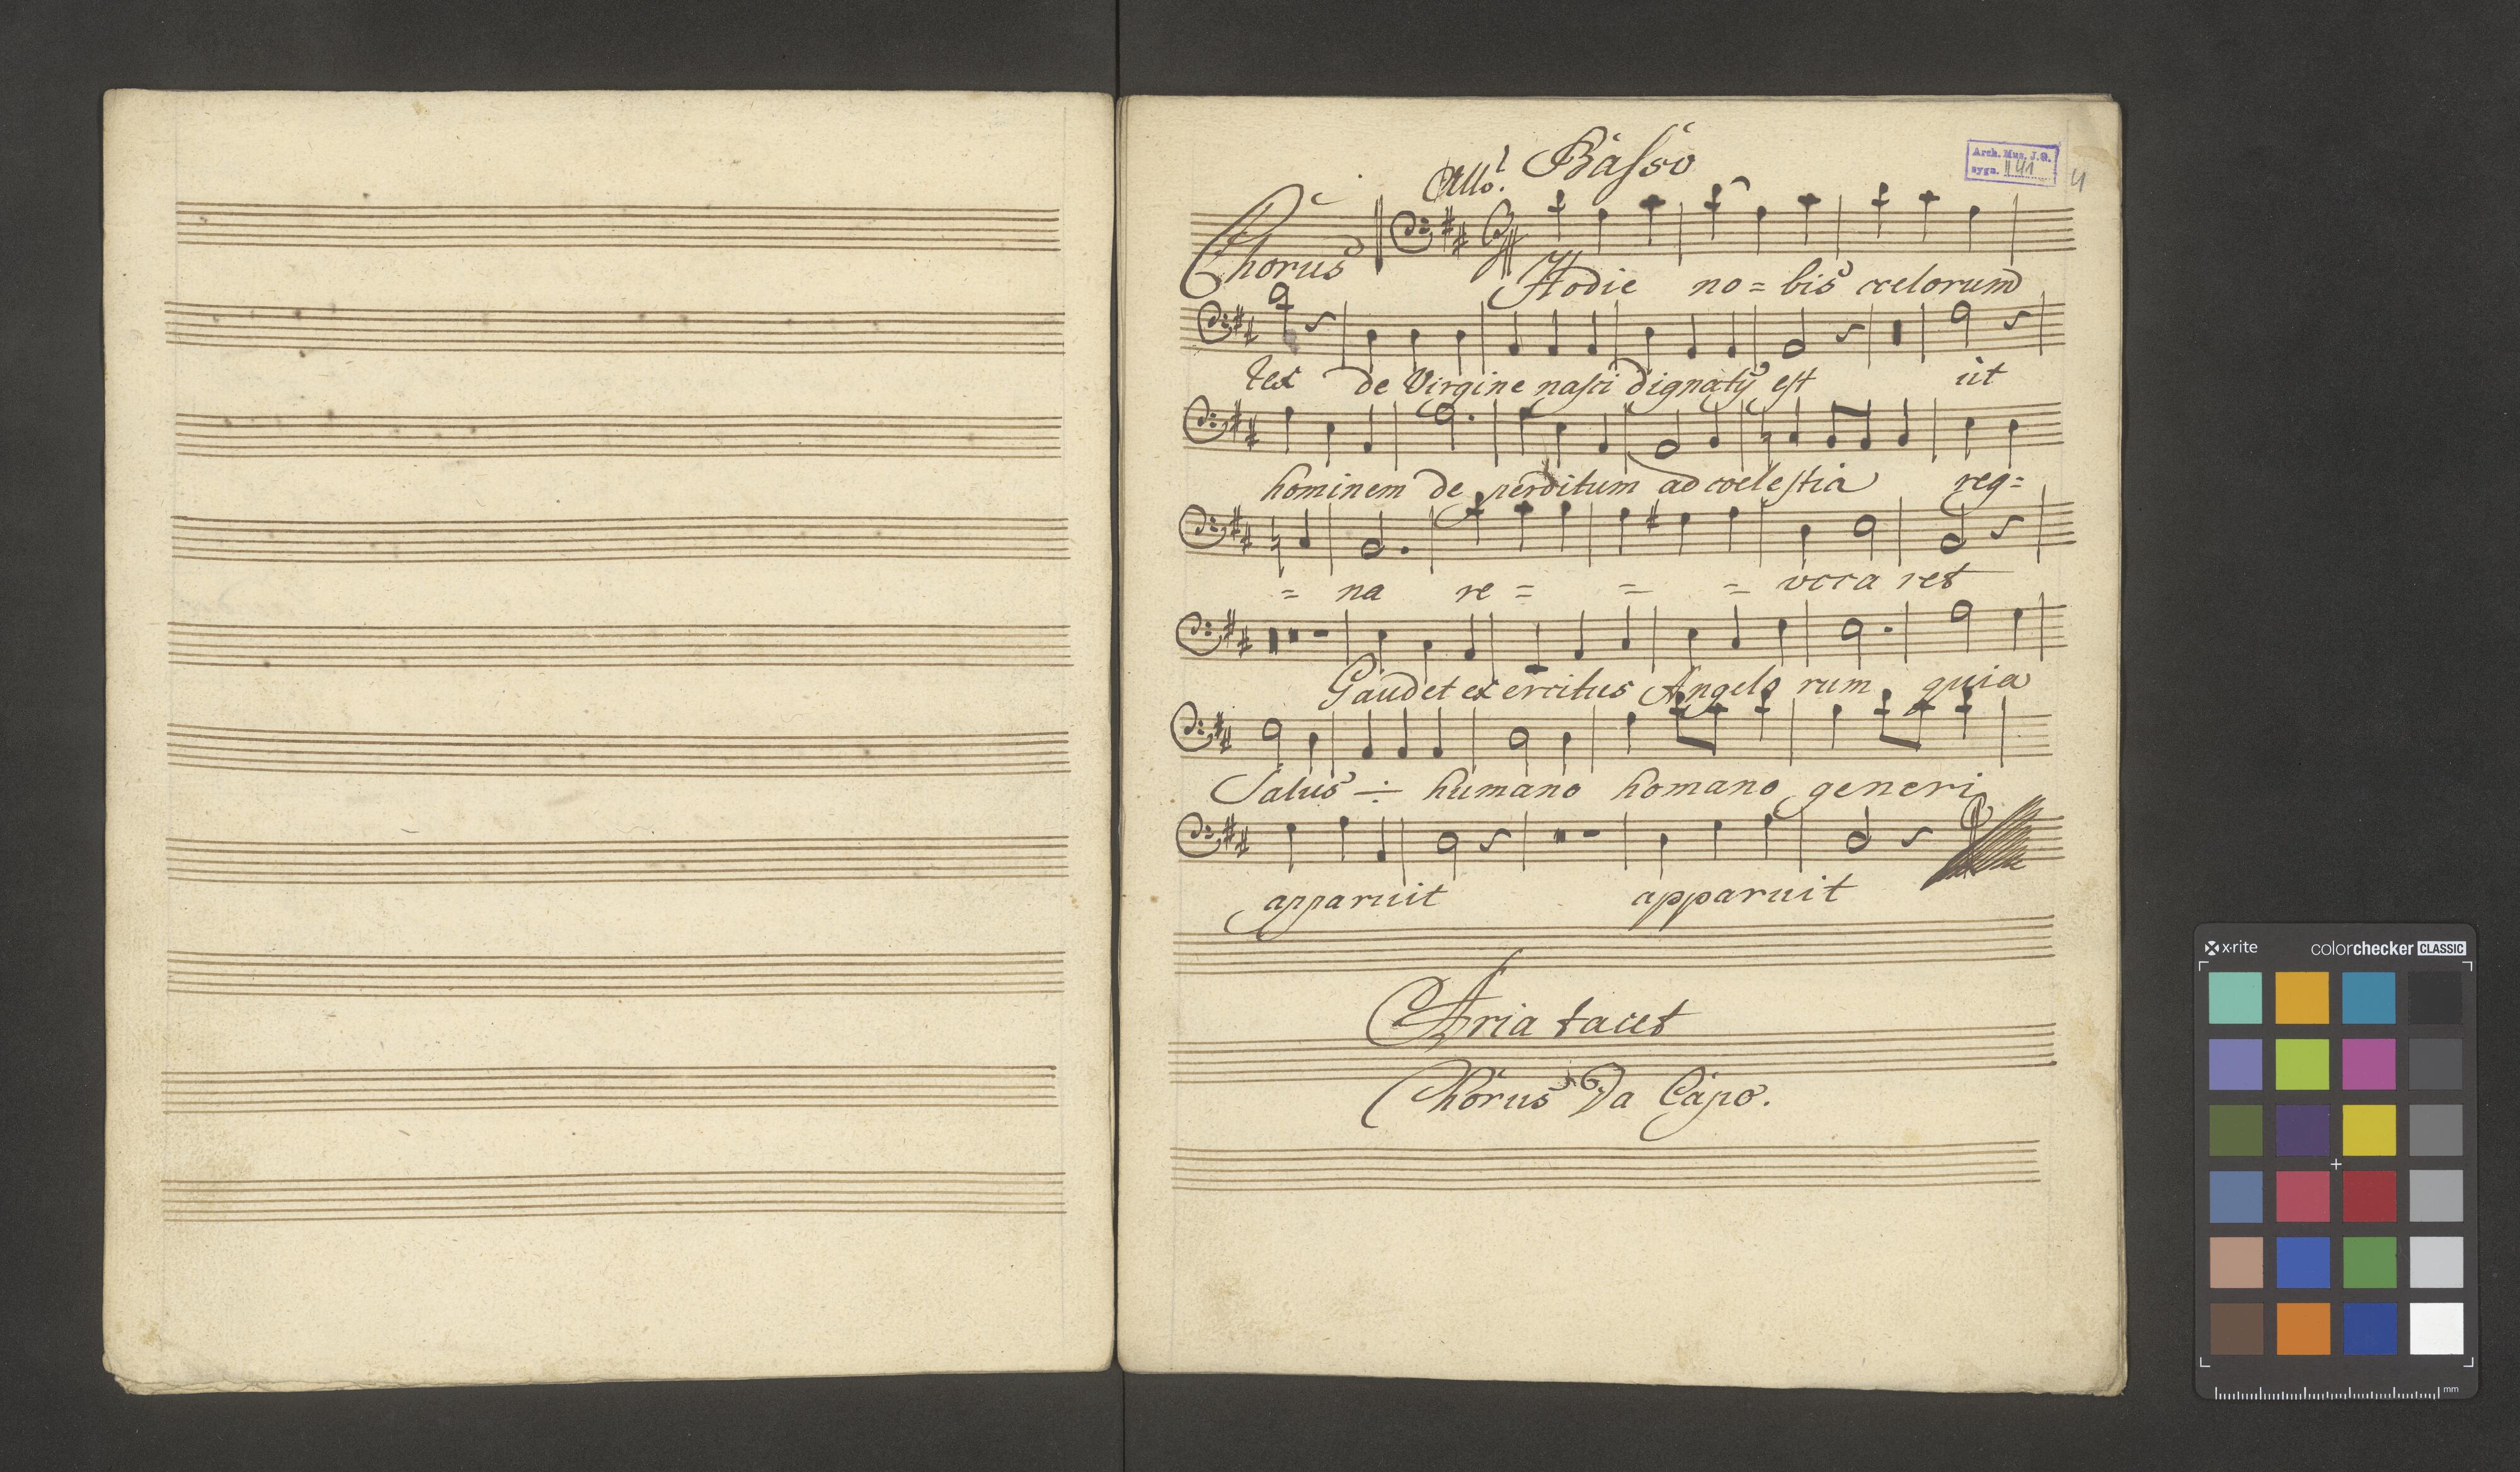 Basso
Allo.
Arch. Mus. J.G.
sygn. II 41
4
Chorus
Hodie no = bis cœlorum
rex de Virgine nasci dignatus est ut
hominem de perditum ad cœlestia reg =
= na re = = = voca ret
Gaudet exercitus Angelo rum quia
Salus ÷ humano homano generi
apparuit apparuit
Aria tacet
Chorus Da Capo.
x·rite
colorchecker CLASSIC
mm